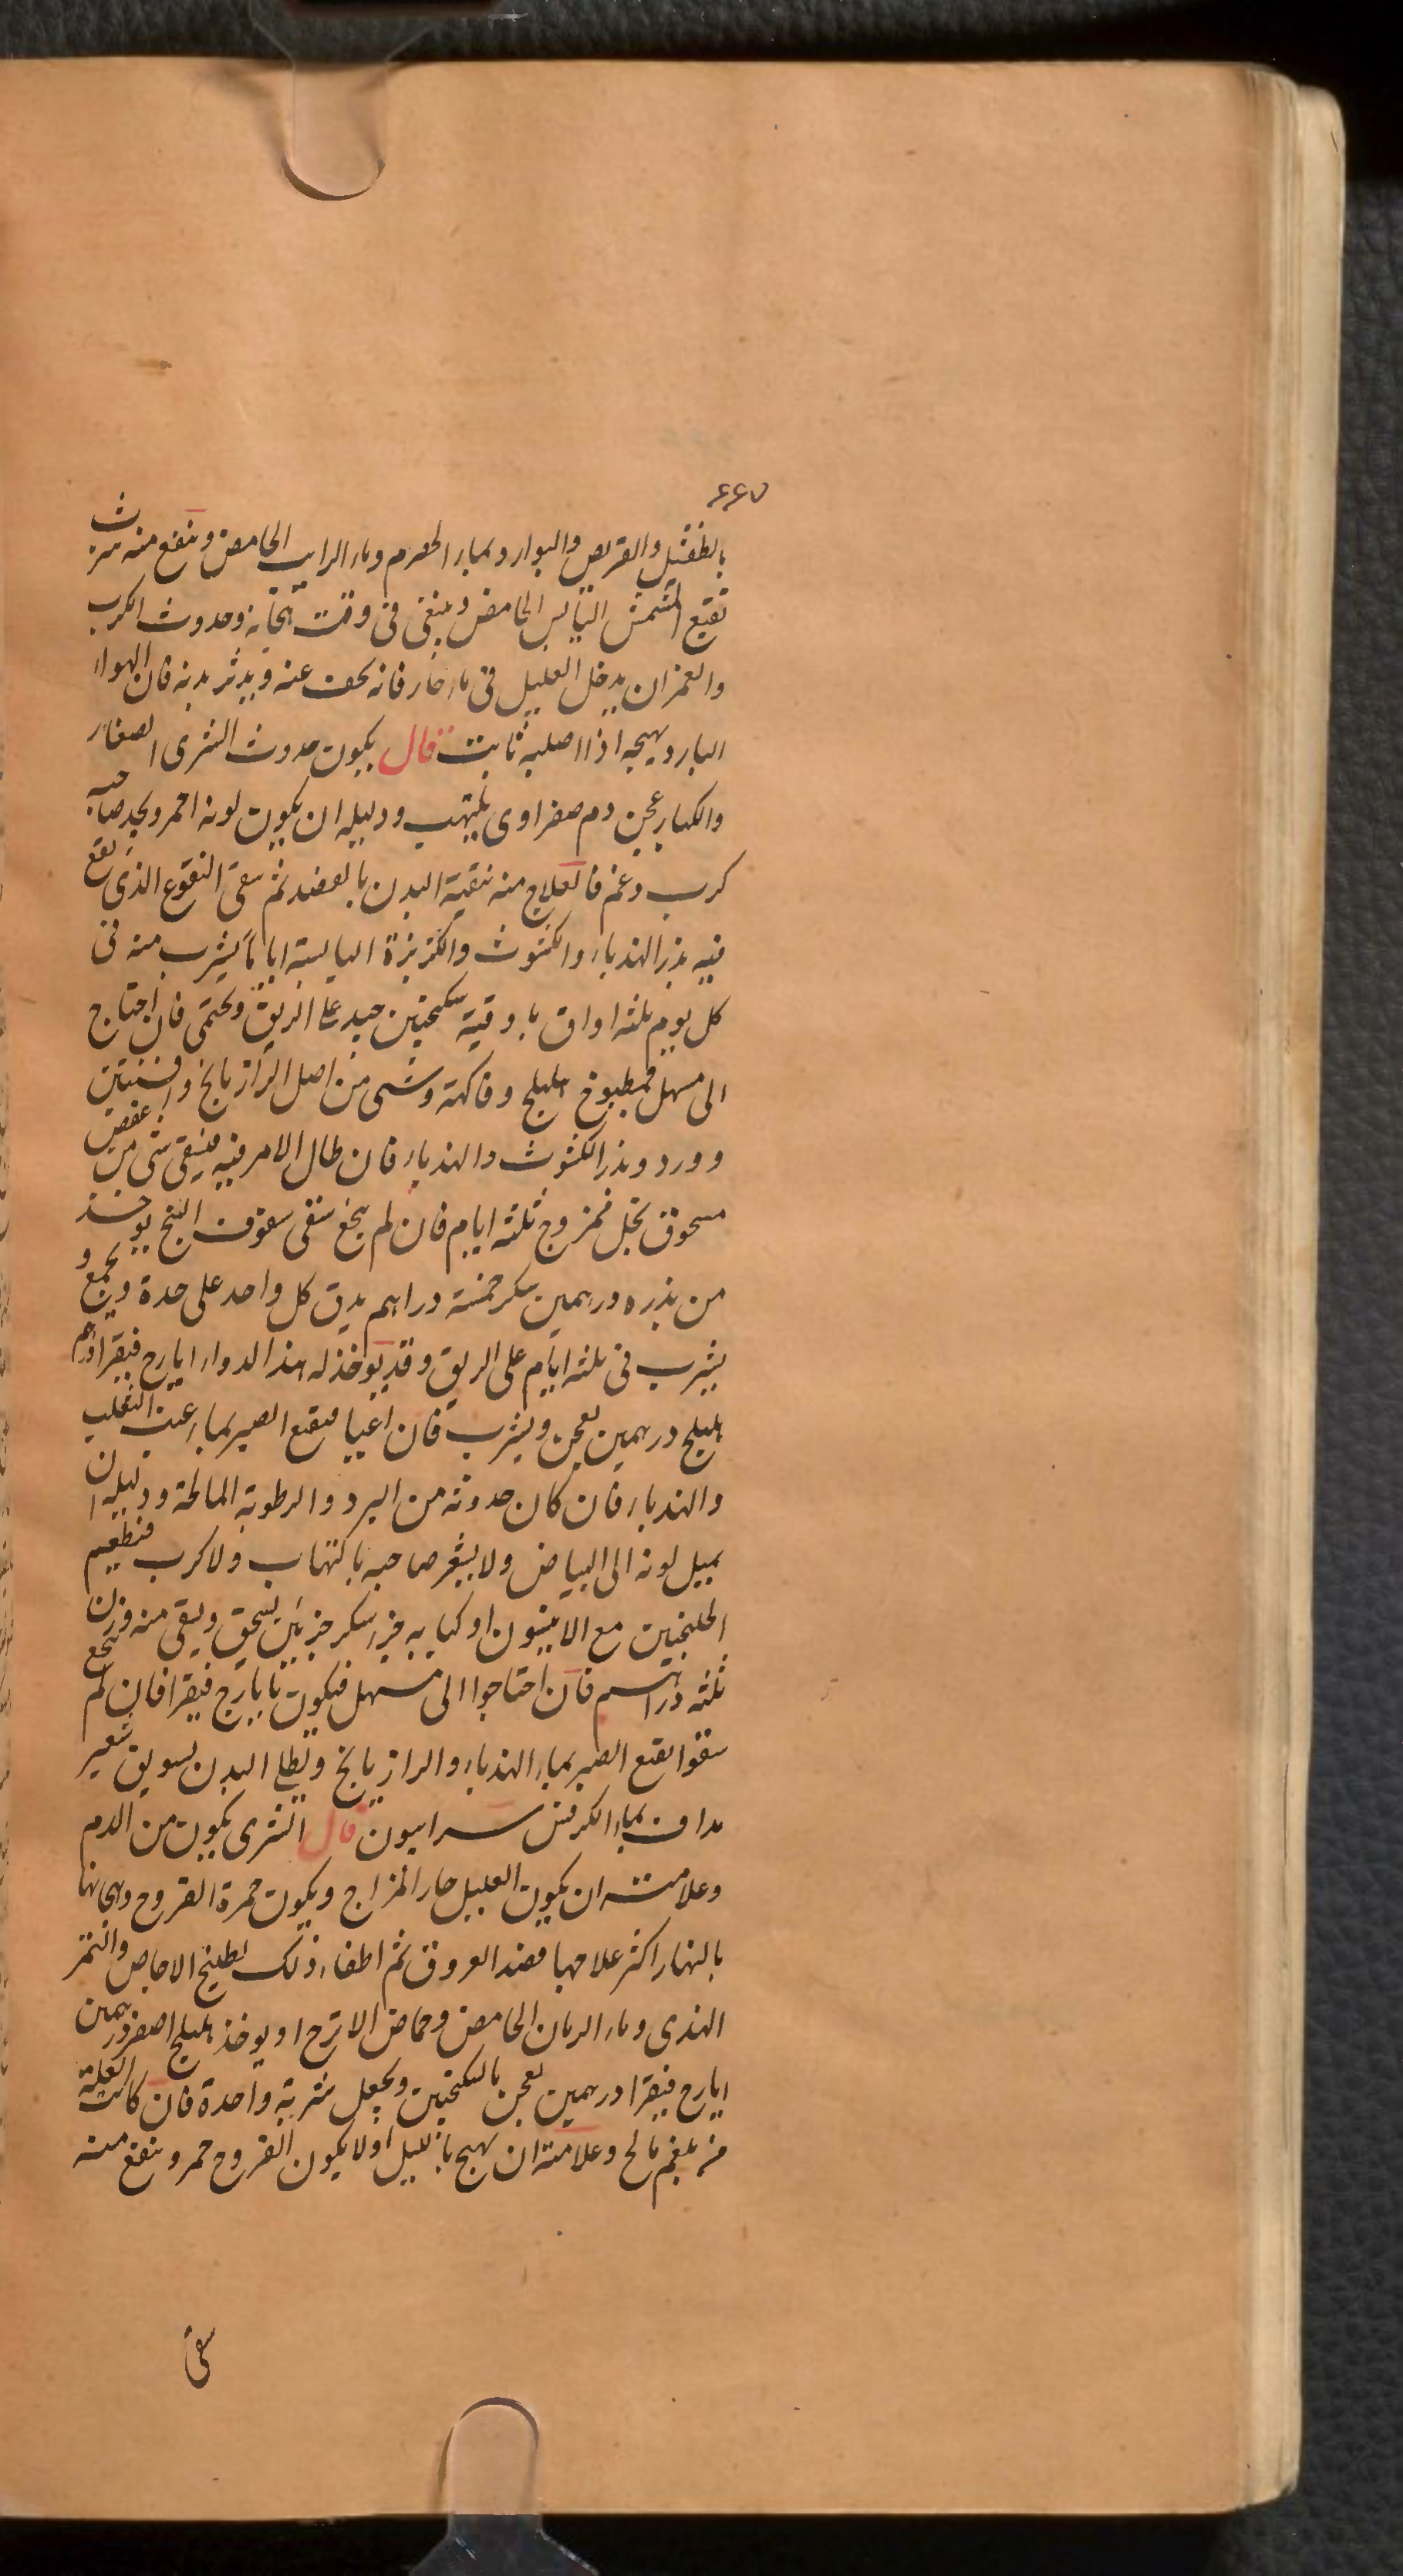 ٤٤٧
بالطفشيل والقريص والبوارد وبماء الحصرم وماء الرايب الحامض وينفع منه شرب
نقيع المشمش اليابس الحامض وينبغى فى وقت هيجانه وحدوث الكرب
والغم ان يدخل العليل فى ماء حار فانه يخف عنه ويدثر بدنه فان الهواء
البارد يهيجه اذا اصابه ثابت قال يكون حدوث الشرى الصغار
والكبار عن دم صفراوى يلتهب ودليله ان يكون لونه احمر ويجد صاحبه
كرب وغم فالعلاج منه تنقية البدن بالفصد ثم سقى النقوع الذى يقع
فيه بذر الهندباء والكشوث والكزبزة اليابسة اياما يشرب منه فى
كل يوم ثلثه اواق باوقية سكنجبين جيد على الريق ويحتمى فان احتاج
الى مسهل فمطبوخ هليلج وفاكهة وشى من اصل الرازيانج وافسنتين
وورد وبذر الكشوث والهندباء فان طال الامر فيه فيسقى شى من عفص
مسحوق بخل ممزوج ثلثه ايام فان لم ينجع سقى سفوف البنج يوخذ
من بذره درهمين سكر خمسة دراهم يدق كل واحد على حدة ويجمع و
يشرب فى ثلثه ايام على الريق وقد يوخذ له هذا الدواء ايارج فيقرا درهم
هليلج درهمين يعجن ويشرب فان اعيا فنقع الصبر بماء عنب الثعلب
والهندباء فان كان حدوثه من البرد والرطوبة المالحة ودليله ان
يميل لونه الى البياض ولا يشعر صاحبه بالتهاب ولا كرب فتطعيم
الجلنجبين مع الانيسون او كبابه جزء سكر جزئين يسحق ويسقى منه وزن
ثلثه دراهم فان احتاجوا الى مسهل فيكون بايارج فيقرا فان لم ينجع
سقوا نقع الصبر بماء الهندباء والرازيانج ويطلى البدن بسويق شعير
مداف بماء الكرفس سرابيون قال الشرى يكون من الدم
وعلامته ان يكون العليل حار المزاج ويكون حمرة القروح وهيجانها
بالنهار اكثر علاجها فصد العروق ثم اطفاء ذلك بطبيخ الاجاص والتمر
الهندى وماء الرمان الحامض وحماض الاترج او يوخذ هليلج اصفر درهمين
ايارج فيقرا درهمين يعجن بالسكنجبين ويجعل شربة واحدة فان كانت العلة
من بلغم مالح وعلامته ان يهيج بالليل ولا يكون القروح حمر وينفع منه
سقى